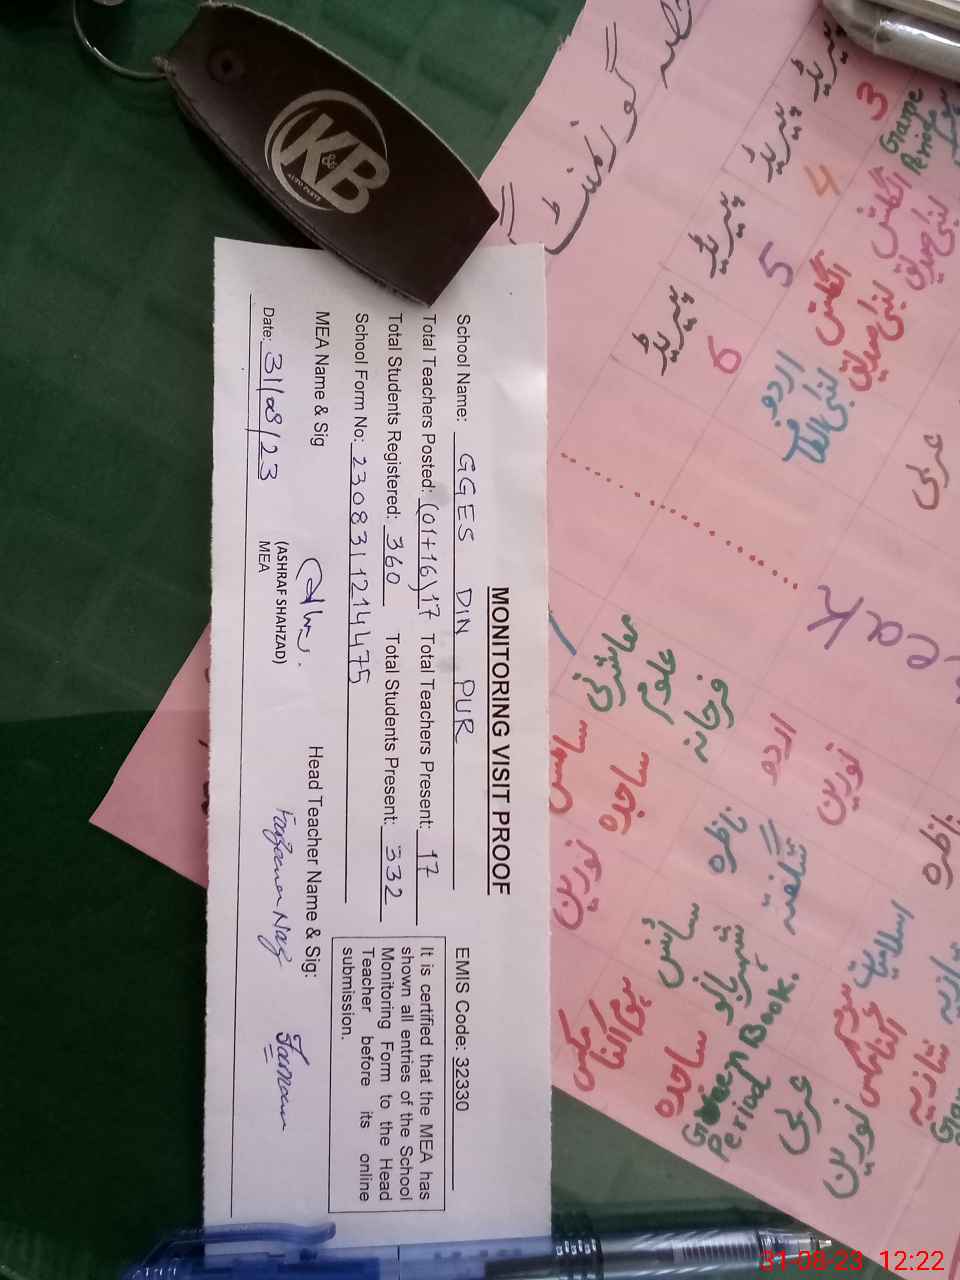 MONITORING VISIT PROOF
School Name: GGES DIN PUR EMIS Code: 32330
Total Teachers Posted: (01+16)17 Total Teachers Present: 17
Total Students Registered: 360 Total Students Present: 332
School Form No: 2308311214475
It is certified that the MEA has
shown all entries of the School
Monitoring Form to the Head
Teacher before its online
submission.
MEA Name & Sig Head Teacher Name & Sig:
(ASHRAF SHAHZAD)
MEA
Date: 31/08/23
K&B
گورنمنٹ
پیریڈ پیریڈ پیریڈ پیریڈ
3 4 5 6
Grame
Period
انگلش
لبنیٰ صدیق
انگلش
لبنیٰ صدیق
اردو
عربی
معاشرتی
علوم
فرحانہ
سائنس
ساجدہ
اردو
نورین
ناظرہ
شگفتہ
نورین
سائنس
شہر بانو
ناظرہ
اسلامیات
ہوم اکنامکس
ساجدہ
Green Book.
Period
عربی
نورین
شازیہ
31-08-23 12:22